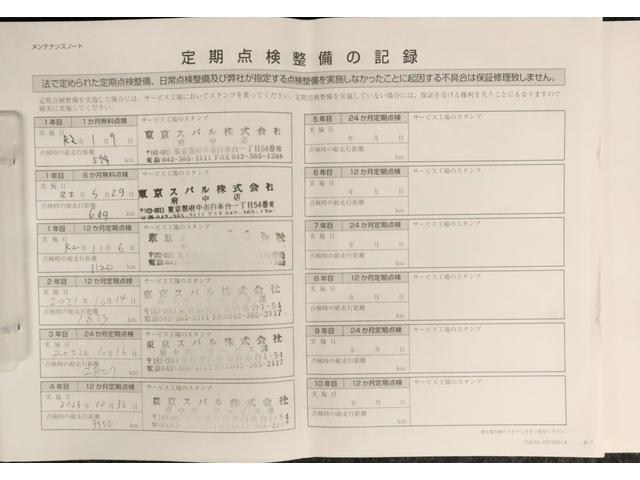 メンテナンスノート
定期点検整備の記録
法で定められた定期点検整備、日常点検整備及び弊社が指定する点検整備を実施しなかったことに起因する不具合は保証修理致しません。
定期点検整備を実施した場合には、サービス工場においてスタンプを貰ってください。定期点検整備を実施していない場合には、保証を受ける権利を失うことにもなりますので、
確実に実施してください。
1年目 1か月無料点検 サービス工場のスタンプ
実施日
R2年1月9日
点検時の総走行距離
594 km
東京スバル株式会社
府中店
〒183-0011 東京都府中市白糸台一丁目54番地
電話042-365-2111 FAX042-365-1398
1年目 6か月無料点検 サービス工場のスタンプ
実施日
R2年5月29日
点検時の総走行距離
649 km
東京スバル株式会社
府中店
〒183-0011 東京都府中市白糸台一丁目54番地
1年目 12か月定期点検 サービス工場のスタンプ
実施日
R2年11月6日
点検時の総走行距離
1120 km
東京スバル株式会社
2年目 12か月定期点検 サービス工場のスタンプ
実施日
2021年10月14日
点検時の総走行距離
1823 km
東京スバル株式会社
府中店 サービス課
〒183-0011 東京都府中市白糸台1-54
電話042-365-2111 FAX042-365-2117
3年目 24か月定期点検 サービス工場のスタンプ
実施日
2022年10月16日
点検時の総走行距離
2807 km
東京スバル株式会社
府中店 サービス課
〒183-0011 東京都府中市白糸台1-54
電話042-365-2111 FAX042-365-2117
4年目 12か月定期点検 サービス工場のスタンプ
実施日
2023年10月30日
点検時の総走行距離
3550 km
東京スバル株式会社
府中店 サービス課
5年目 24か月定期点検 サービス工場のスタンプ
実施日
年 月 日
点検時の総走行距離
km
6年目 12か月定期点検 サービス工場のスタンプ
実施日
年 月 日
点検時の総走行距離
km
7年目 24か月定期点検 サービス工場のスタンプ
実施日
年 月 日
点検時の総走行距離
km
8年目 12か月定期点検 サービス工場のスタンプ
実施日
年 月 日
点検時の総走行距離
km
9年目 24か月定期点検 サービス工場のスタンプ
実施日
年 月 日
点検時の総走行距離
km
10年目 12か月定期点検 サービス工場のスタンプ
実施日
年 月 日
点検時の総走行距離
km